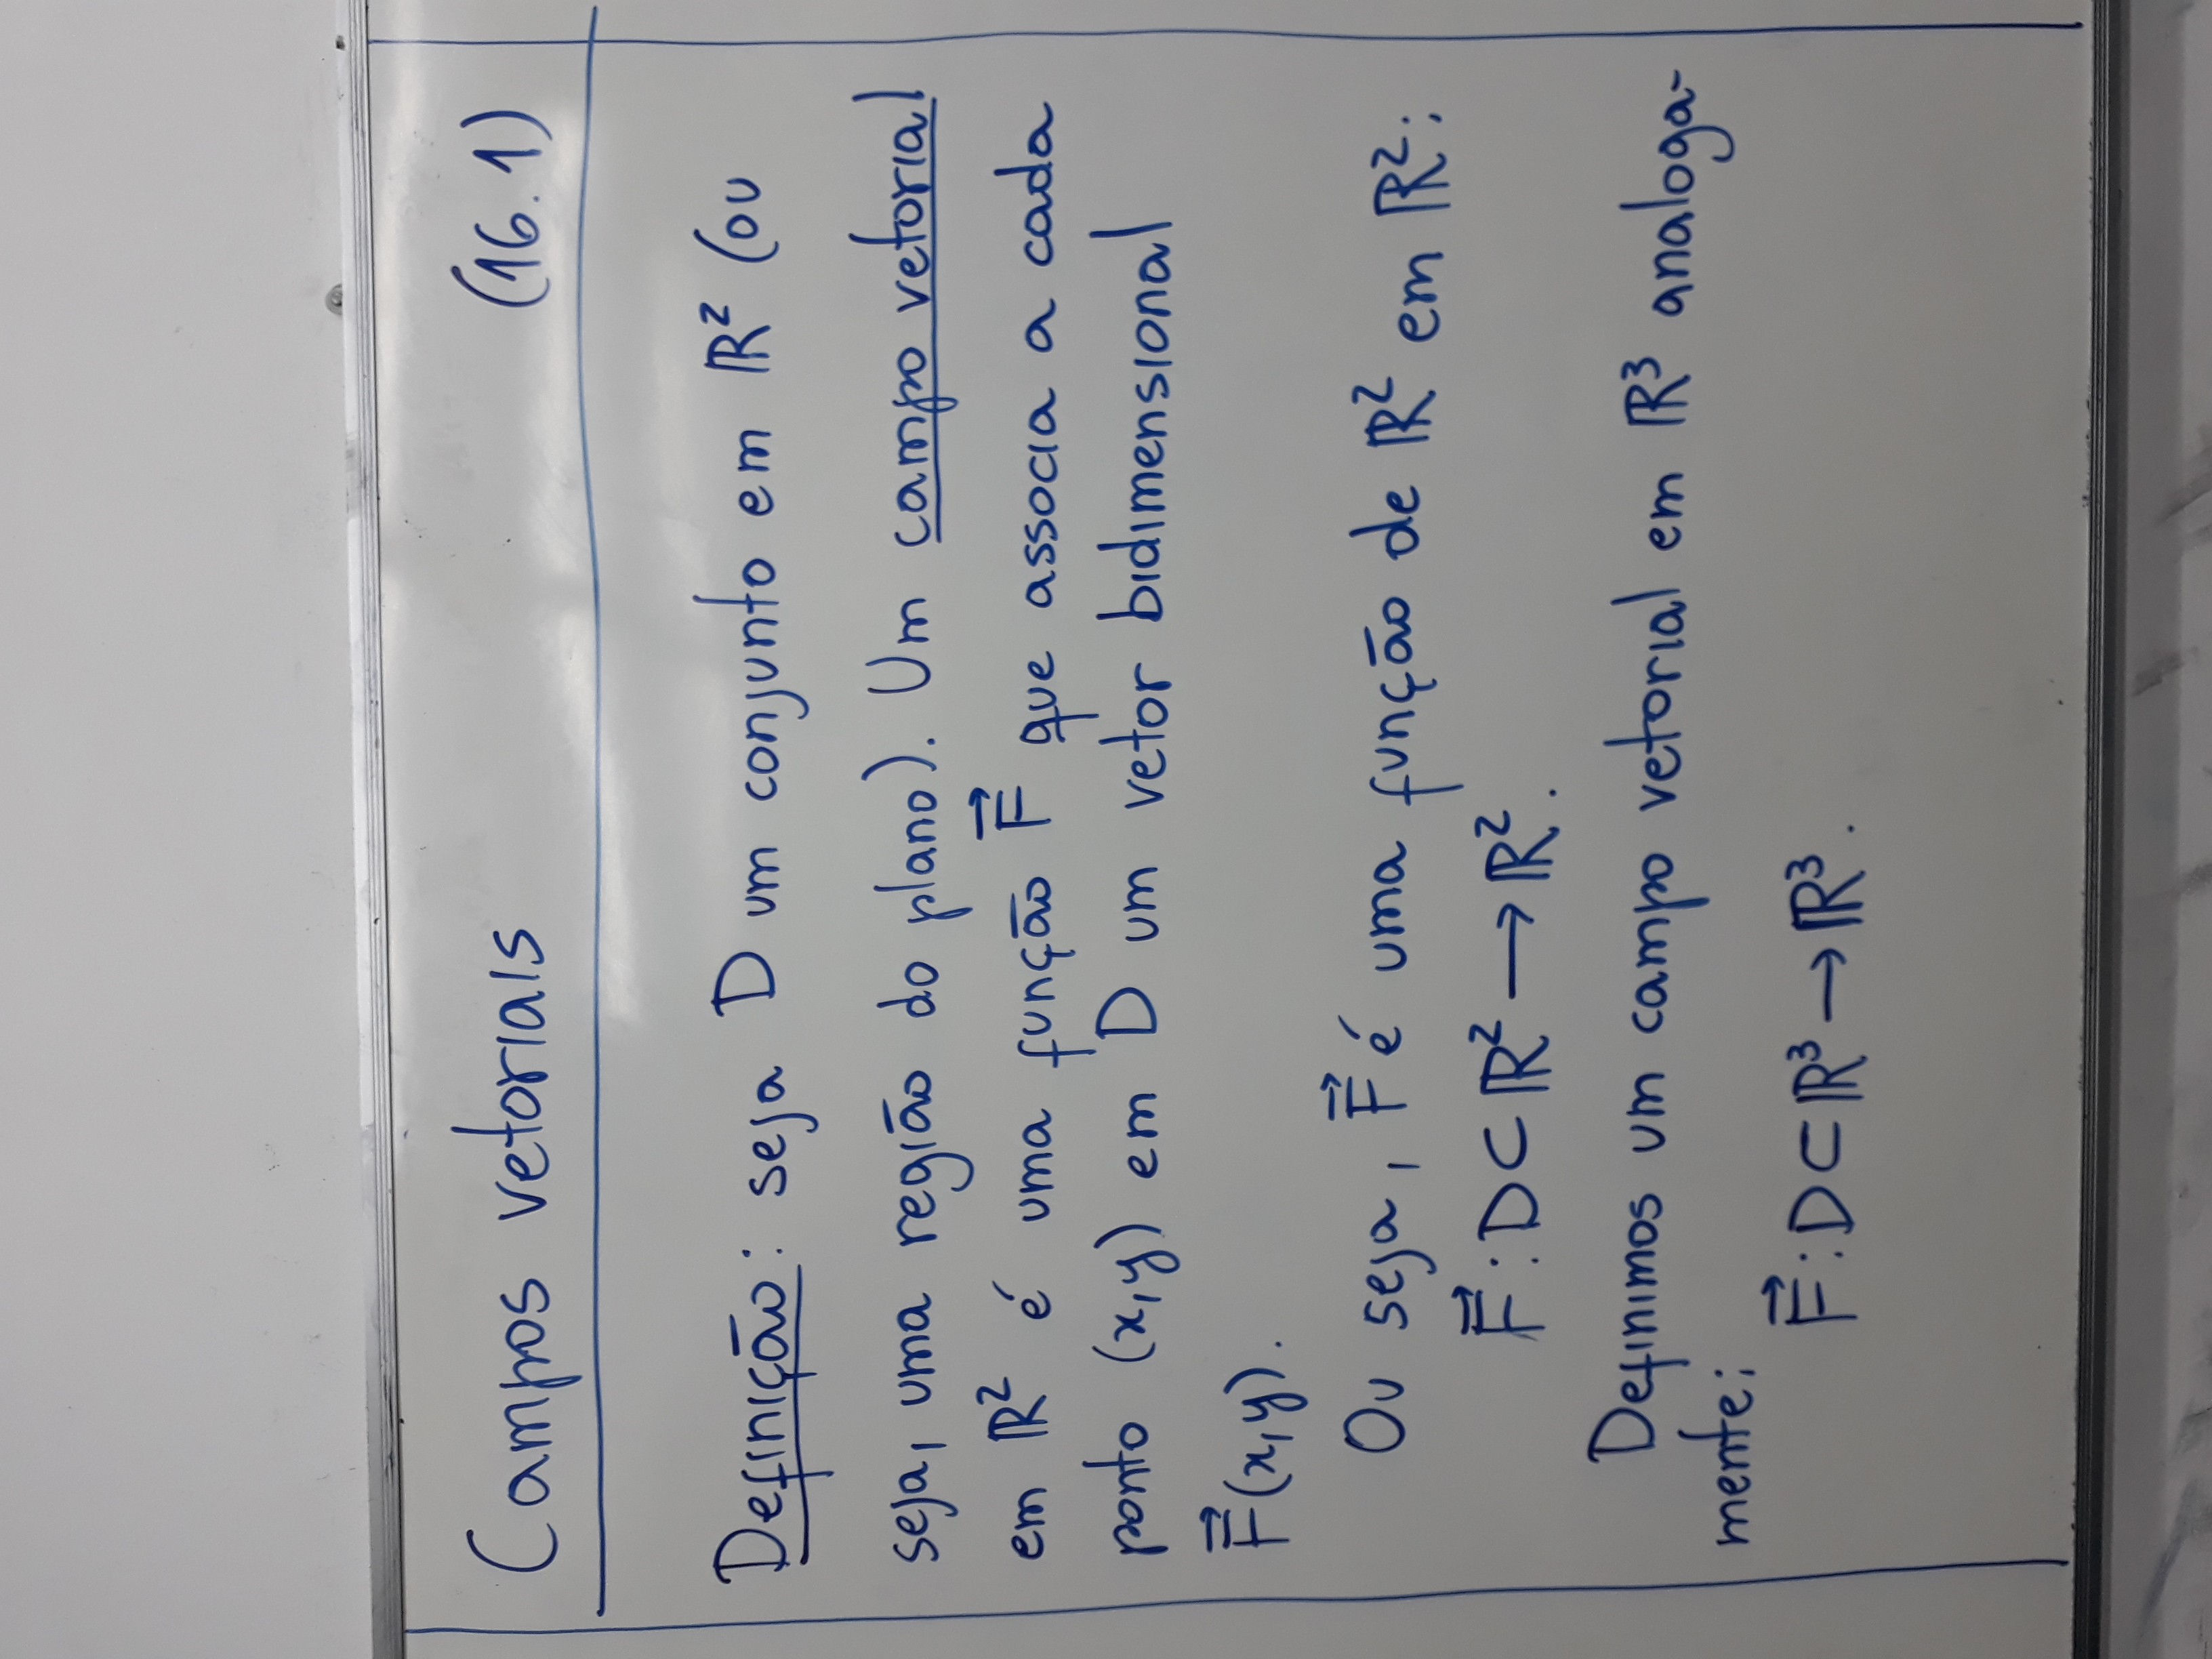 Campos vetoriais (16.1)
Definição: seja D um conjunto em ℝ² (ou
seja, uma região do plano). Um campo vetorial
em ℝ² é uma função F⃗ que associa a cada
ponto (x,y) em D um vetor bidimensional
F⃗(x,y).
Ou seja, F⃗ é uma função de ℝ² em ℝ²:
F⃗: D ⊂ ℝ² → ℝ².
Definimos um campo vetorial em ℝ³ analoga-
mente:
F⃗: D ⊂ ℝ³ → ℝ³.